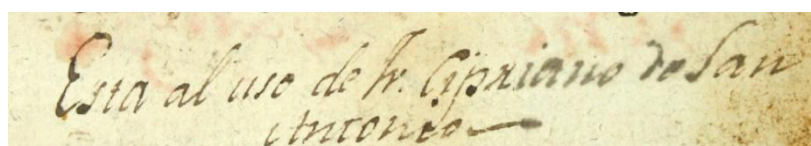 Esta al uso de fr. Cipriano de San
Antonio